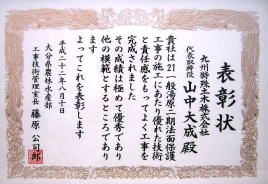 表彰状
九州特殊土木株式会社
代表取締役 山中大成 殿
貴社は21一般湯原二期法面保護
工事の施工にあたり優れた技術
と責任感をもってよく工事を
完成されました
その成績は極めて優秀であり
他の模範とするところであり
ます
よってこれを表彰します
平成二十二年八月十日
大分県農林水産部
工事技術管理室長 藤原公司